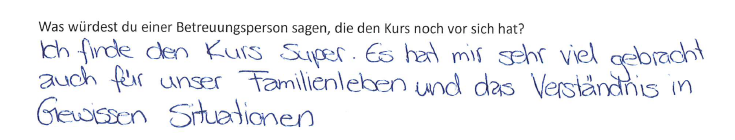 Was würdest du einer Betreuungsperson sagen, die den Kurs noch vor sich hat?
Ich finde den Kurs Super. Es hat mir sehr viel gebracht
auch für unser Familienleben und das Verständnis in
Gewissen Situationen